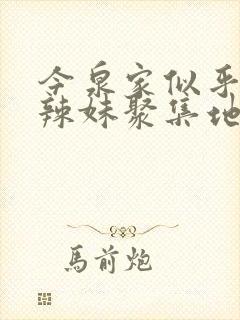 今泉家似乎
辣妹聚集地
馬前炮